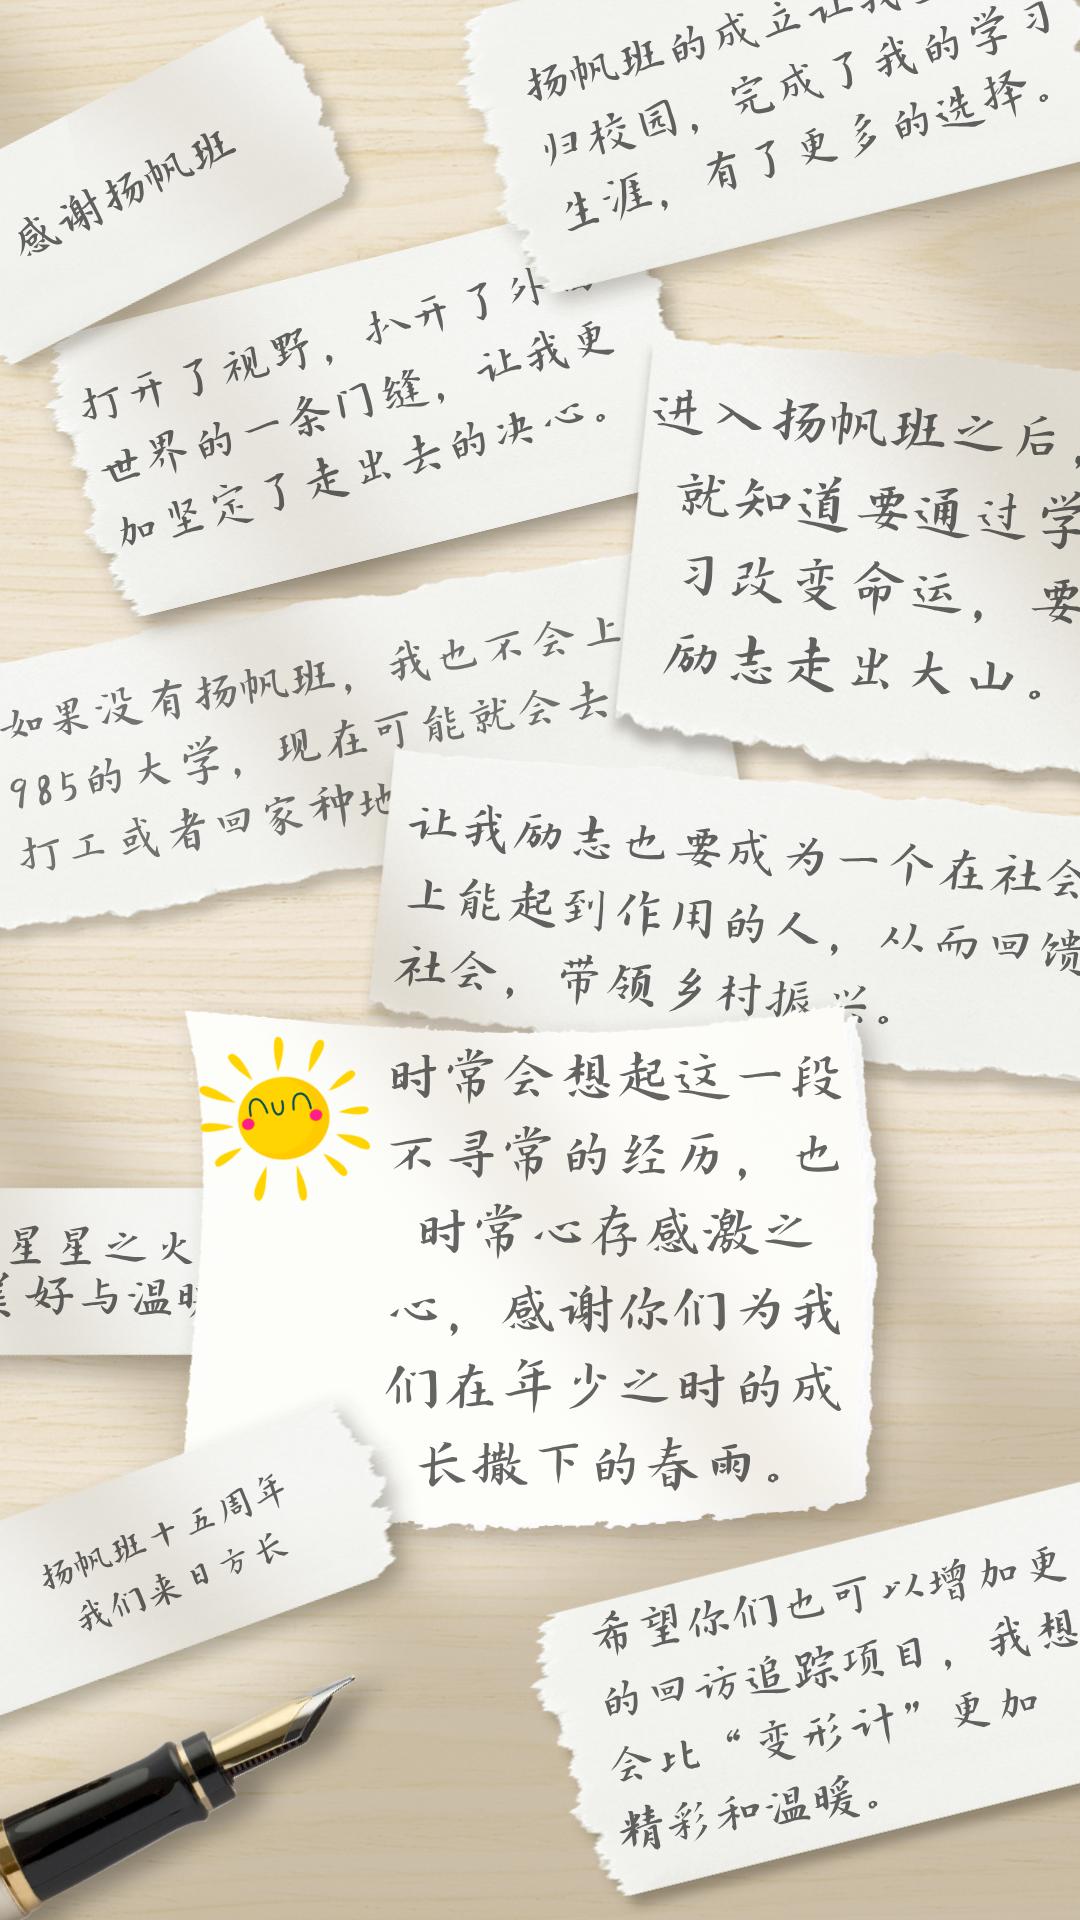 感谢扬帆班
扬帆班的成立让我
归校园，完成了我的学习
生涯，有了更多的选择。
打开了视野，扒开了外
世界的一条门缝，让我更
加坚定了走出去的决心。
进入扬帆班之后，
就知道要通过学
习改变命运，要
励志走出大山。
如果没有扬帆班，我也不会上
985的大学，现在可能就会去
打工或者回家种地
让我励志也要成为一个在社会
上能起到作用的人，从而回馈
社会，带领乡村振兴。
时常会想起这一段
不寻常的经历，也
时常心存感激之
心，感谢你们为我
们在年少之时的成
长撒下的春雨。
星星之火
美好与温暖
扬帆班十五周年
我们来日方长
希望你们也可以增加更
的回访追踪项目，我想
会比“变形计”更加
精彩和温暖。